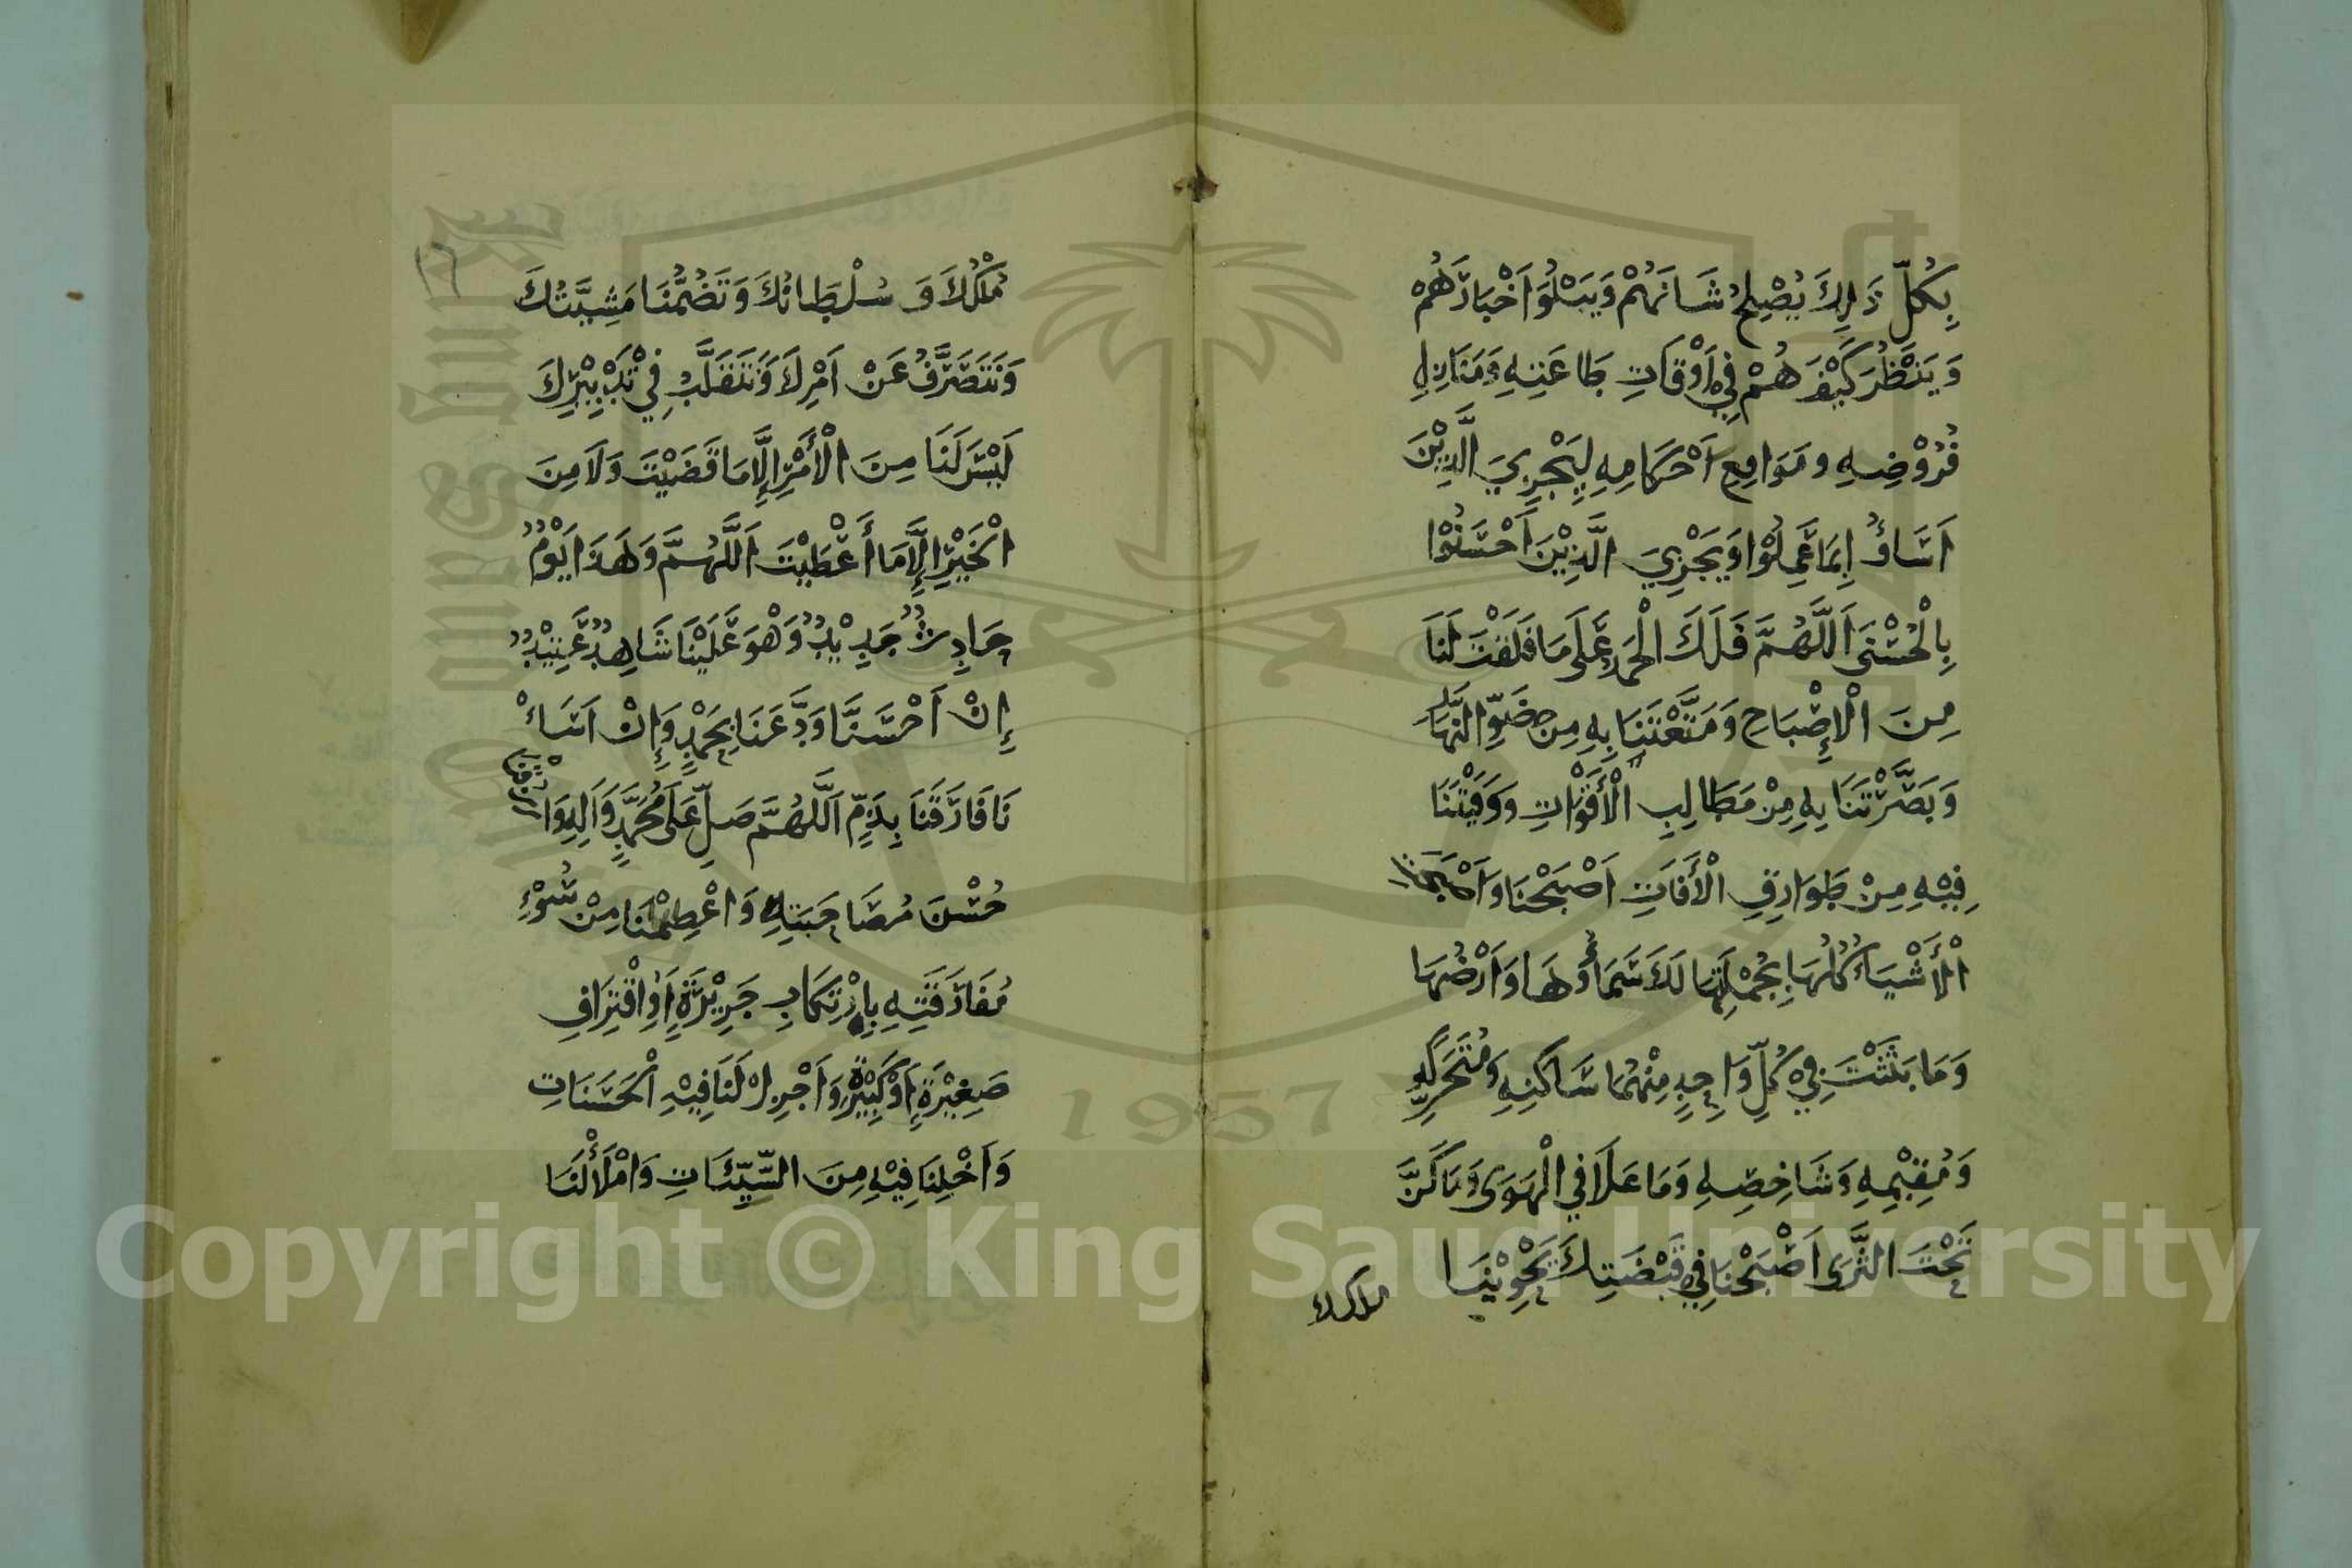 بِكُلِّ ذَلِكَ يُصْلِحُ شَانَهُمْ وَيَبْلُوَا اَخْبَارَهُمْ
وَيَنْظُرَ كَيْفَ هُمْ فِيْ اَوْقَاتِ طَاعَتِهِ وَمَنَازِلِ
فُرُوْضِهِ وَمَوَاقِعِ اَحْكَامِهِ لِيَجْزِيَ الَّذِيْنَ
اَسَاؤُ اِبِمَا عَمِلُوْا وَيَجْزِيَ الَّذِيْنَ اَحْسَنُوْا
بِالْحُسْنَى اَللَّهُمَّ فَلَكَ الْحَمْدُ عَلَى مَا فَلَقْتَ لَنَا
مِنَ الْإِصْبَاحِ وَمَتَّعْتَنَا بِهِ مِن ضَوِّ النَّهَارِ
وَبَصَّرْتَنَا بِهِ مِنْ مَطَالِبِ الْأَقْوَاتِ وَوَقَيْتَنَا
فِيْهِ مِنْ طَوَارِقِ الْأَفَاتِ اَصْبَحْنَا وَاَصْبَحَتْ
الْأَشْيَاءُ كُلُّهَا بِجُمْلَتِهَا لَكَ سَمَاؤُهَا وَاَرْضُهَا
وَمَا بَثَثْتَ فِيْ كُلِّ وَاحِدٍ مِنْهُمَا سَاكِنِهِ وَمُتَحَرِّكِهِ
وَمُقِيْمِهِ وَشَاخِصِهِ وَمَا عَلَا فِي الْهَوَى وَمَا كَنَّ
تَحْتَ الثَّرَى اَصْبَحْنَا فِيْ قَبْضَتِكَ يَحْوِيْنَا
ملكك
١٦
مُلْكُكَ وَ سُلْطَانُكَ وَتَضُمُّنَا مَشِيَّتُكَ
وَنَتَصَرَّفُ عَنْ اَمْرِكَ وَنَتَقَلَّبُ فِيْ تَدْبِيْرِكَ
لَيْسَ لَنَا مِنَ الْأَمْرِ اِلَّا مَا قَضَيْتَ وَلَا مِنَ
الْخَيْرِ اِلَّا مَا أَعْطَيْتَ اَللَّهُمَّ وَهَذَا يَوْمٌ
حَادِثٌ جَدِيْدٌ وَهْوَ عَلَيْنَا شَاهِدٌ عَتِيْدٌ
إِنْ اَحْسَنَّا وَدَّعَنَا بِحَمْدٍ وَإِنْ اَسَاءْ
نَا فَارَقَنَا بِذَمٍّ اَللَّهُمَّ صَلِّ عَلَى مُحَمَّدٍ وَاَلِهِ وَارْزُقْنَا
حُسْنَ مُصَاحَبَتِهِ وَاعْصِمْنَا مِنْ سُوْءِ
مُفَارَقَتِهِ بِارْتِكَابِ جَرِيْرَةٍ اَوِ اقْتِرَافِ
صَغِيْرَةٍ اَوْ كَبِيْرَةٍ وَاَجْزِلْ لَنَا فِيْهِ الْحَسَنَاتِ
وَاَخْلِنَا فِيْهِ مِنَ السَّيِّئَاتِ وَامْلَأْ لَنَا
Copyright © King Saud University
1957